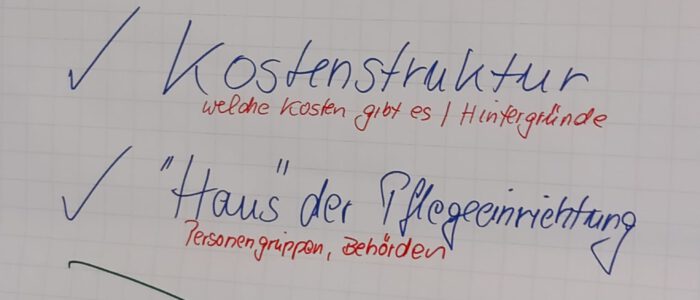 Kostenstruktur
welche Kosten gibt es / Hintergründe
"Haus" der Pflegeeinrichtung
Personengruppen, Behörden